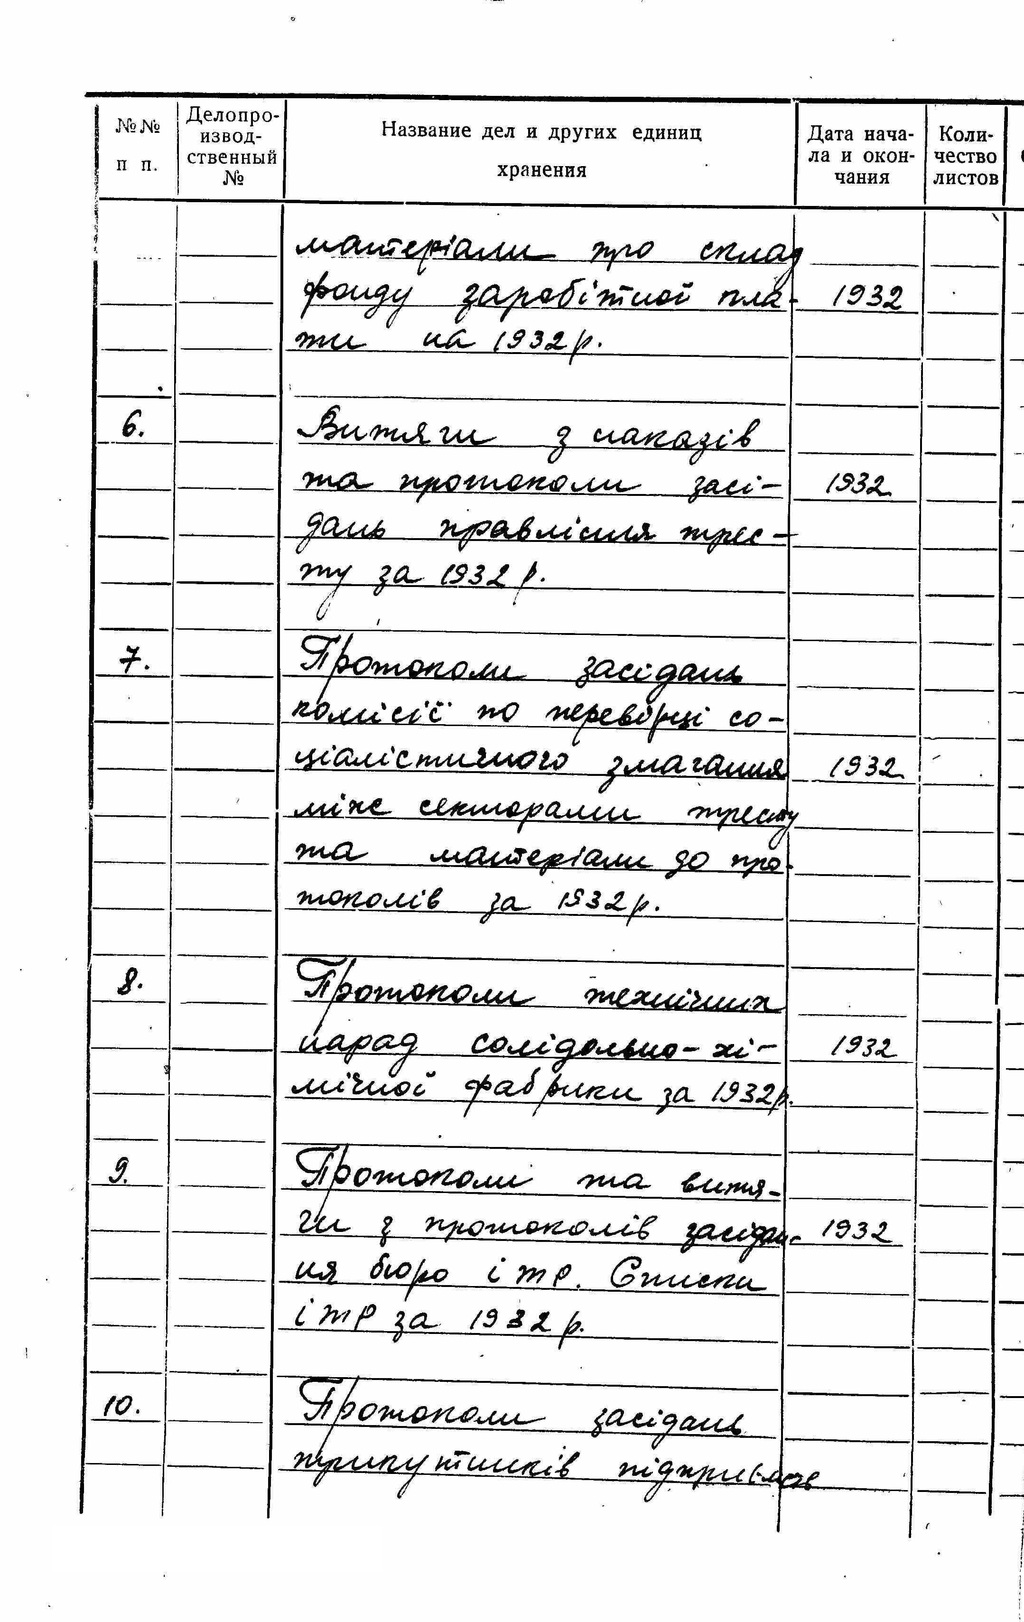 №№ п п.
Делопроизвод-
ственный №
Название дел и других единиц
хранения
Дата нача-
ла и окон-
чания
Коли-
чество
листов
матеріали про склад
фонду заробітної пла-
ти на 1932 р.
1932
6. Витяги з наказів
та протоколи засі-
дань правління трес-
ту за 1932 р.
1932
7. Протоколи засідань
комісії по перевірці со-
ціалістичного змагання
між секторами тресту
та матеріали до про-
токолів за 1932 р.
1932
8. Протоколи технічних
нарад солідольно-хі-
мічної фабрики за 1932 р.
1932
9. Протоколи та витя-
ги з протоколів засідан-
ня бюро ІТР. Списки
ІТР за 1932 р.
1932
10. Протоколи засідань
трикутників підприємств